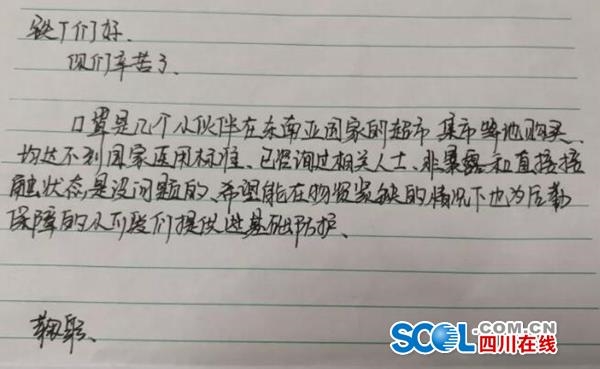 铁丁们好.
你们辛苦了.
口罩是几个小伙伴在东南亚国家的超市 集市等地购买.
均达不到国家医用标准. 已咨询过相关人士. 非暴露和直接接
触状态是没问题的. 希望能在物资紧缺的情况下也为后勤
保障的小伙伴们提供些基础防护.
鞠躬.
SCOL.COM.CN
四川在线